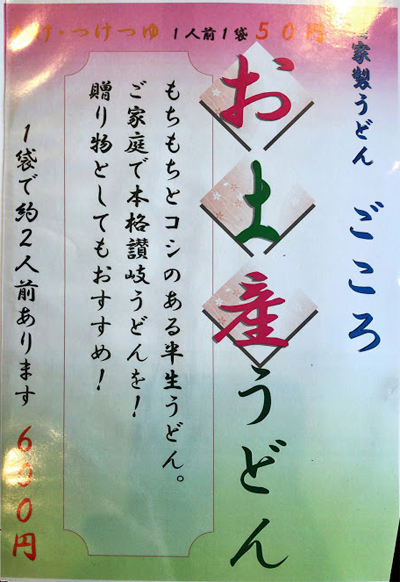 け・つけつゆ 1人前1袋 50円
家製うどん ごころ
お土産うどん
もちもちとコシのある半生うどん。
ご家庭で本格讃岐うどんを!
贈り物としてもおすすめ!
1袋で約2人前あります 600円